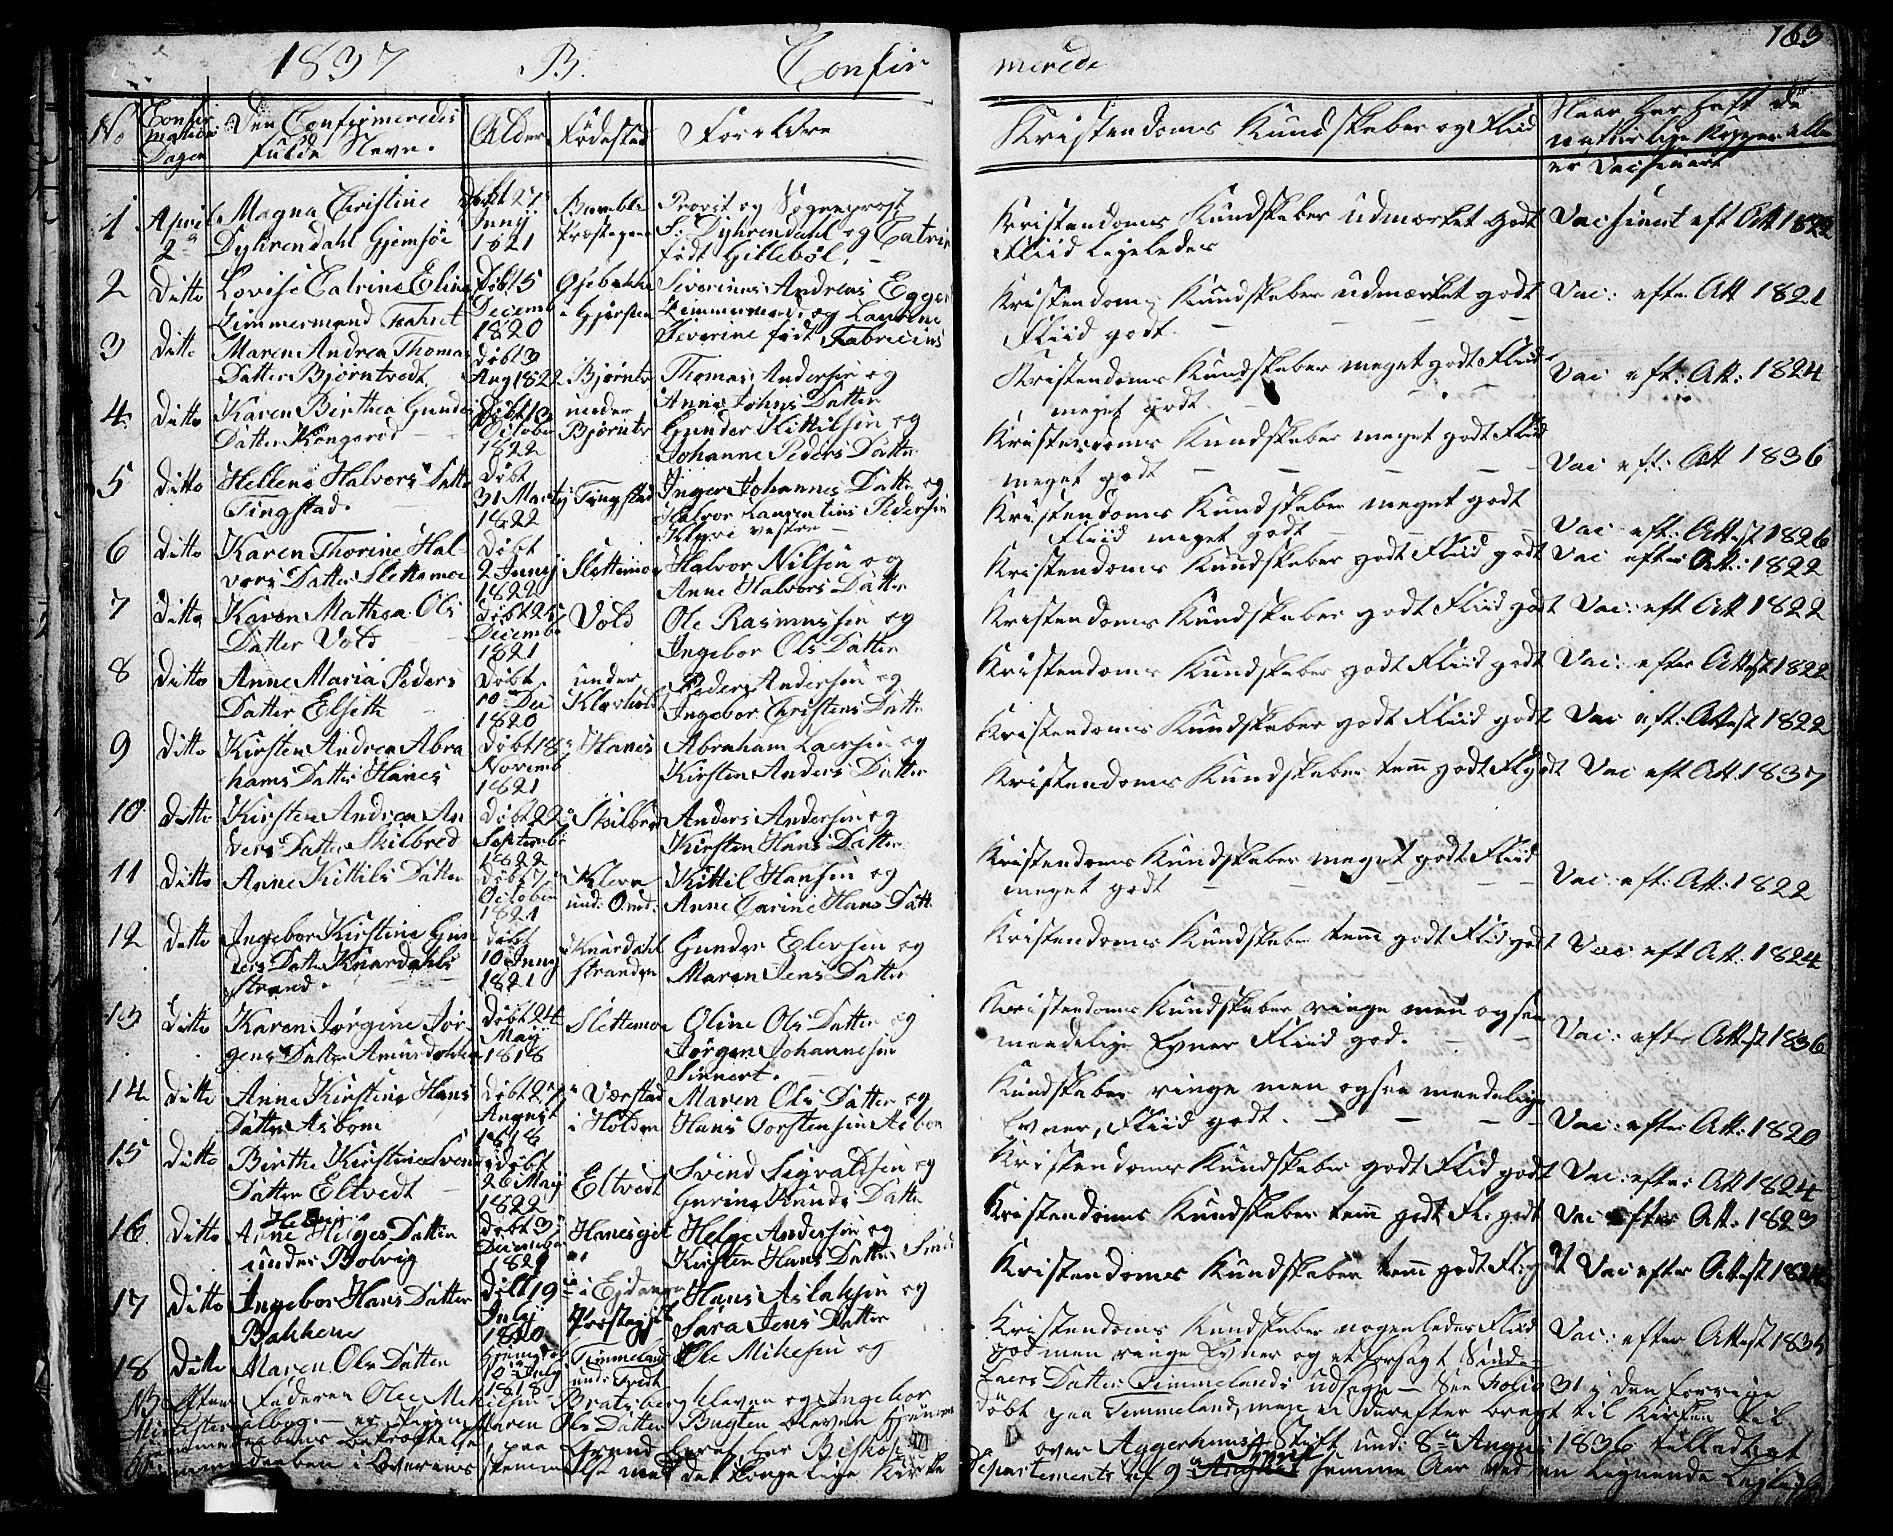 1837 B. Confir
merede
163
No
Confir
mations
Dagen
Den Confirmeredes
fulde Navn.
Alder
Födested
Forældre
Kristendoms Kundskaber og Fliid
Naar har haft de
naturlige Kopper eller
er Vacsineret
1 April 2 Magna Christine
Dyhrendahl Gjemsöe
Döbt 27
Juny
1821
Bamble
Præstegaard
Provst og Sogneprest
S: Dyhrendahl og Catrine
födt Gilleböl.
Kristendoms Kundskaber udmærket godt
Fliid ligeledes
Vacsineret eft Att 1822
2 Ditto Lovise Catrine Elina
Zimmermand
Döbt 5
Decemb
1820
Osebakke
i Gjersten
Siverinus Andreas Egger
Zimmerman og Laurine
Severine födt Fabricius
Kristendoms Kundskaber udmærket godt
Fliid godt.
Vac: efter Att 1821
3 Ditto Maren Andrea Thomas
Datter Björntvedt
Döbt 3
Aug 1822
Björntv
Thomas Andersen og
Anne Johns Datter
Kristendoms Kundskaber meget godt Fliid
meget godt
Vac eft: Att: 1824
4 Ditto Karen Birthea Gunders
Datter Kongerød
Döbt 13
October
1822
under
Björntv
Gunder Kittilsen og
Johanne Peders Datter
Kristendoms Kundskaber meget godt Fliid
meget godt
Vac eft: Att 1836
5 Ditto Hellene Halvors Datter
Tingstad.
Döbt
31 Marty
1822
Tingstad
Inger Johannes Datter og
Halvor Laurentius Pedersen
Klyve vestre
Kristendoms Kundskaber meget godt
Fliid meget godt
Vac eft: Attest 1826
6 Ditto Karen Thorine Hal-
vors Datter Slettemoe
Döbt
2 Juny
1822
Slettemoe
Halvor Nilsen og
Anne Halvors Datter
Kristendoms Kundskaber godt Fliid godt
Vac efter Att: 1822
7 Ditto Karen Mathea Ols
Datter Vold
Döbt 25
Decembr
1821
Vold
Ole Rasmussen og
Ingebor Ols Datter
Kristendoms Kundskaber godt Fliid godt
Vac: eft Att 1822
8 Ditto Anne Maria Peders
Datter Elseth
Döbt
10 Dec
1820
under
Klovholt
Peder Andersen og
Ingebor Christens Datter
Kristendoms Kundskaber godt Fliid godt
Vac: efter Attest 1822
9 Ditto Kirsten Andrea Abra
hams Datter Hanes
Döbt 18
Novemb
1821
Hanes
Abraham Laersen og
Kirsten Anders Datter
Kristendoms Kundskaber godt Fliid godt
Vac eft: Attest 1822
10 Ditto Kirsten Andrea An
ders Datter Skilbred
Döbt 22
Septembr
1822
Skilbred
Anders Andersen og
Kirsten Hans Datter
Kristendoms Kundskaber tem godt Fl godt
Vac eft Att. 1837
11 Ditto Anne Kittils Datter
Döbt 7
October
1821
Kleva
und: Omd:
Kittil Hansen og
Anne Carine Hans Datt
Kristendoms Kundskaber meget godt Fliid
meget godt
Vac: eft: Att: 1822
12 Ditto Ingebor Kirstine Gun
ders Datter Knardahls
strand.
Döbt
10 Juny
1821
Knardahl
stranden
Gunder Elevsen og
Maren Jens Datter
Kristendoms Kundskaber tem godt Fliid godt
Vac eft Att: 1824
13 Ditto Karen Jörgine Jör-
gens Datter
Döbt 24
May
1818
Slettemoe
Oline Ols Datter og
Jörgen Johannesen
Sinnert.
Kristendoms Kundskaber ringe men og saa
maadelige Evner Fliid god.
Vac: efter Attest 1836
14 Ditto Anne Kirstine Hans
Datter Asbom
Döbt 27
August
1818
Værstad
i Holden
Maren Ols Datter og
Hans Torstensen Asbom
Kundskaber ringe men ogsaa maadelige
Evner, Fliid godt.
Vac: efter Att: 1820
15 Ditto Birthe Kirstine Svens
Datter Eltvedt
döbt
26 May
1822
Eltvedt
Svend Sigvaldsen og
Gurine Knuds Datter
Kristendoms Kundskaber godt Fliid godt
Vac: efter Att 1824
16 Ditto Anne Helges Datter
under Bolvig
Döbt 3
December
1821
Hanesejet
Helge Andersen og
Kirsten Hans Datter
Kristendoms Kundskaber tem godt Fl: godt
Vac efter Att: 1823
17 Ditto Ingebor Hans Datter
Bakkene
Döbt 19
July
1820
i Ejdanger
Præstegjeld
Hans Aslaksen og
Sara Jens Datter
Kristendoms Kundskaber tem godt Fl: godt
Vac efter Attest
18 Ditto Maren Ols Datter
Hjemdöbt
10 July
1818
Timmeland
und:
Ole Mikelsen og
Kristendoms Kundskaber nogenledes Fliid
god men ringe Evner og et forsagt Sind
Vac: efter Attest 1835
NB. Efter Faderen Ole Mikelsen Bratsberg Kleven og Ingebor
Laers Datter Timmelands udsagn — See Folio 31 i den forrige
Ministerialbog — er Maren Ols Datter Bugten Kleven hjemme
döbt paa Timmeland, men er derefter bragt til Kirken til
over Aggerhuus Stift und: 8de Augus 1836 tilladt at
Departements af 9 samme Aar ved en lignende Leylighed